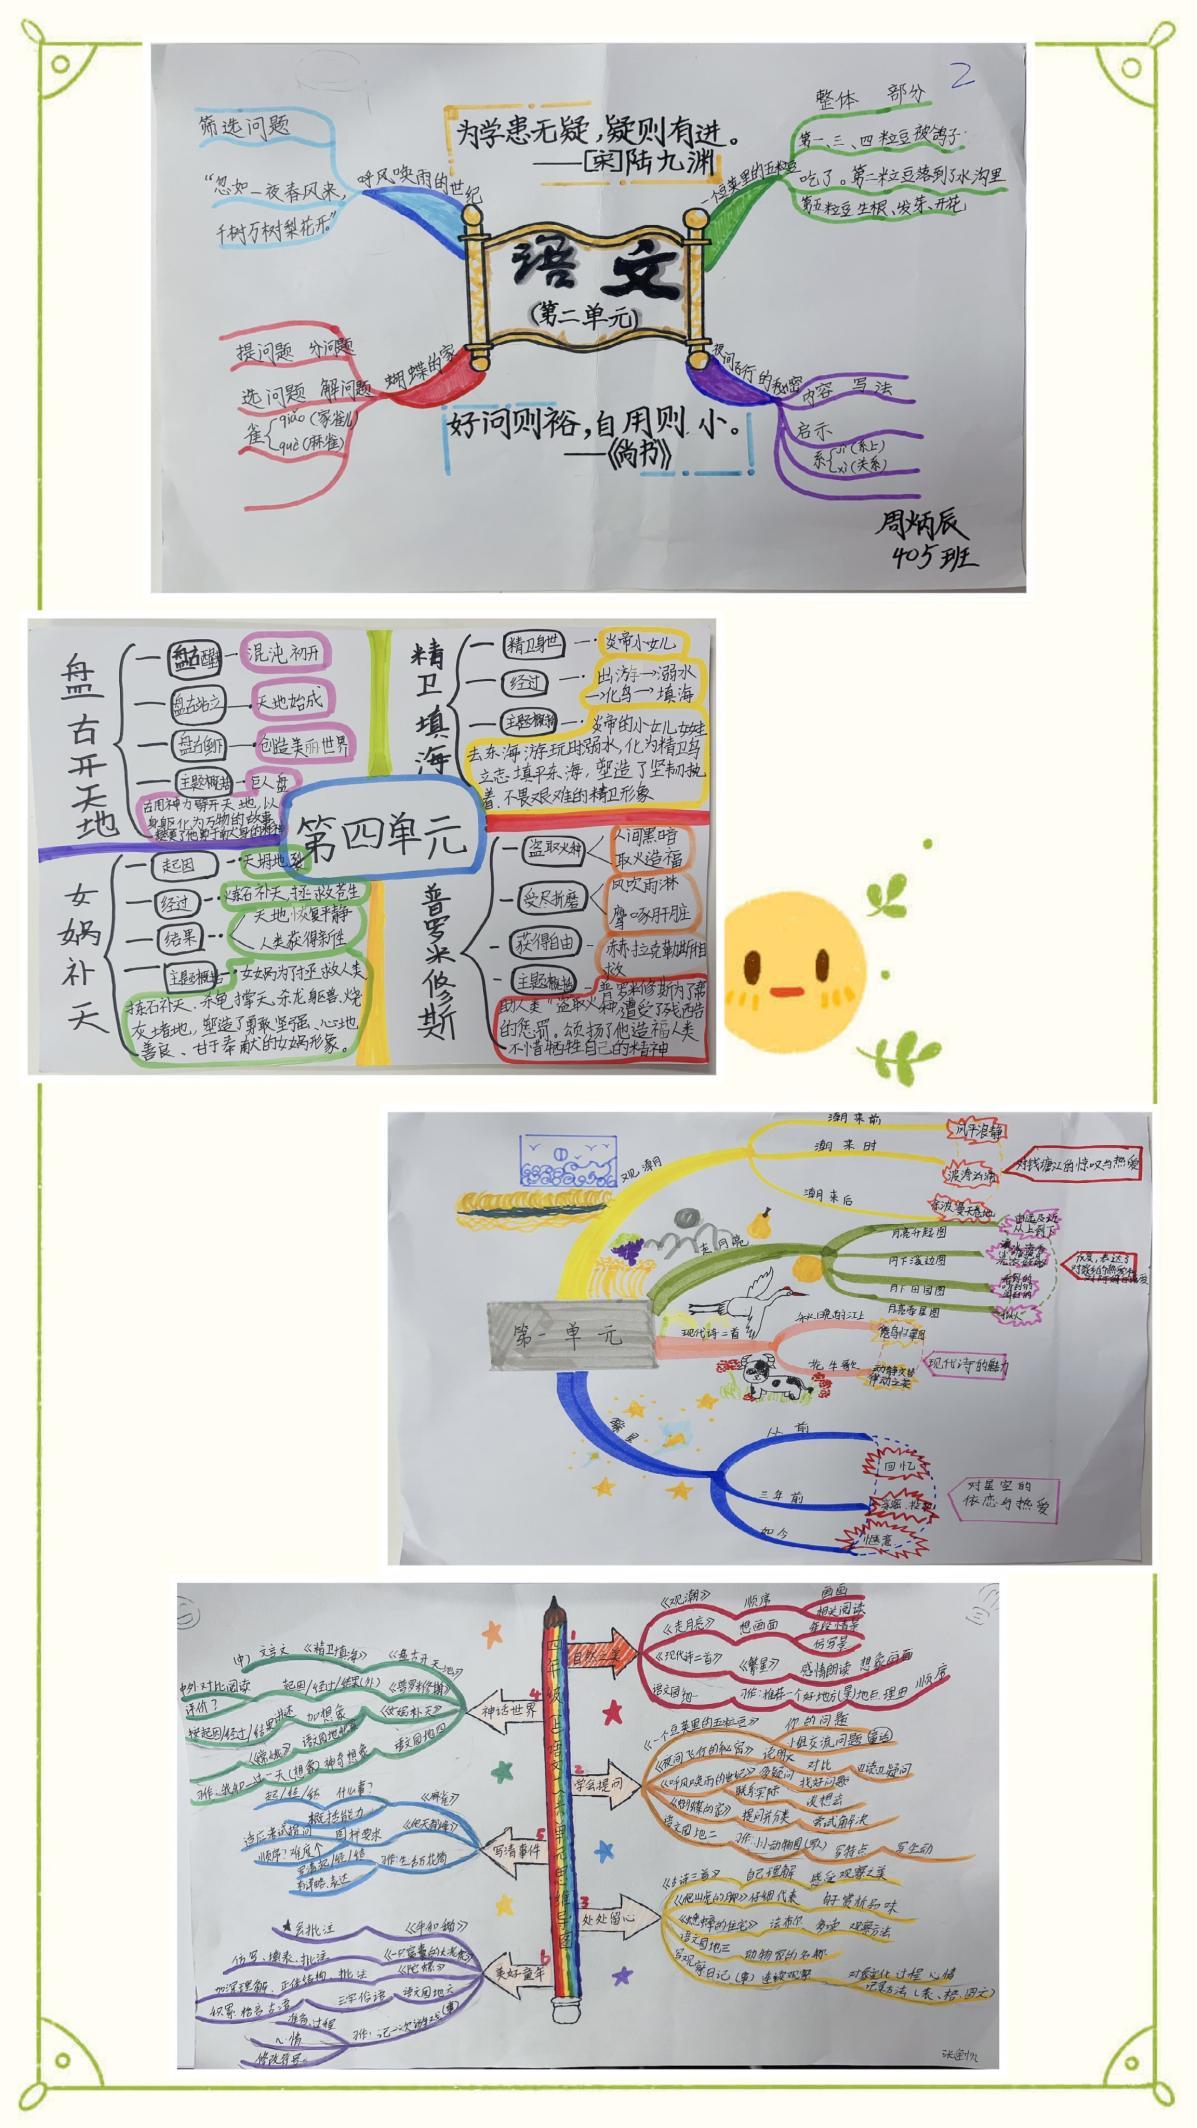 2
筛选问题
“忽如一夜春风来，
千树万树梨花开。”
呼风唤雨的世纪
为学患无疑，疑则有进。
——[宋]陆九渊
一个豆荚里的五粒豆
整体 部分
第一、三、四粒豆被鸽子
吃了。第二粒豆落到了水沟里
第五粒豆生根、发芽、开花
语文
(第二单元)
提问题 分问题
选问题 解问题
雀 qiǎo(家雀儿)
què(麻雀)
蝴蝶的家
好问则裕，自用则小。
——《尚书》
夜间飞行的秘密
内容 写法
启示
系 jì(系上)
xì(关系)
周炳辰
405班
第四单元
盘古开天地
盘古醒 混沌初开
盘古站立 天地始成
盘古倒下 创造美丽世界
主题概括 巨人盘
古用神力劈开天地，以
身躯化为万物的故事
精卫填海
精卫身世 炎帝小女儿
经过 出游→溺水
→化鸟→填海
主题概括 炎帝的小女儿女娃
去东海游玩时溺水，化为精卫鸟
立志填平东海，塑造了坚韧执
着、不畏艰难的精卫形象
女娲补天
起因 天塌地裂
经过 炼石补天，拯救苍生
结果 天地恢复平静
人类获得新生
主题概括 女娲为了拯救人类
炼石补天、杀龟撑天、杀龙驱兽、烧
灰堵地，塑造了勇敢坚强、心地
善良、甘于奉献的女娲形象。
普罗米修斯
盗取火种 人间黑暗
取火造福
受尽折磨 风吹雨淋
鹰啄肝脏
获得自由 赫拉克勒斯相
救
主题概括 普罗米修斯为了帮
助人类“盗取火种”遭受了残酷
的惩罚。颂扬了他造福人类
不惜牺牲自己的精神
第一单元
观潮
潮来前 风平浪静
潮来时 波涛汹涌
潮来后
对钱塘江的惊叹与热爱
走月亮
月亮升起图 由远及近
从上到下
月下溪边图
月下田园图
月亮牵星图
现代诗二首
秋晚的江上
花牛歌
现代诗的魅力
繁星
三年前
如今
回忆
惬意
对星空的
依恋与热爱
四年级上语文八个单元思维导图
1 自然之美
《观潮》 顺序 画面
相关阅读
《走月亮》 想画面 每段情景
仿写景
《现代诗二首》《繁星》 感情朗读 想象画面
语文园地一 习作:推荐一个好地方(景)地点、理由 顺序
2 学会提问
《一个豆荚里的五粒豆》 你的问题
小组交流问题
《夜间飞行的秘密》 对比
《呼风唤雨的世纪》 联系实际 找好问题
《蝴蝶的家》 提问分类 尝试解决
语文园地二 习作:小小动物园(家) 写特点 写生动
3 处处留心
《古诗三首》 自己理解 感受观察之美
《爬山虎的脚》 仔细 代表 好赏析品味
《蟋蟀的住宅》 多读 观察方法
语文园地三 动物家的名称
写观察日记(事) 连续观察
4 神话世界
(中) 文言文 《精卫填海》 《盘古开天地》
中外对比阅读 起因/经过/结果(外) 《普罗米修斯》
评价?
按起因/经过/结果讲述 加想象 《女娲补天》
《嫦娥》 语文园地四
习作:我和__过一天(想象) 神奇想象
5 写清事件
起/经/结 什么事? 《麻雀》
概括能力
《爬天都峰》
习作:生活万花筒
6 美好童年
会批注 《牛和鹅》
仿写、填表、批注 《一只窝囊的大老虎》
加深理解、批注 《陀螺》
积累 格言 古语 三字俗语 语文园地六
习作:记一次游戏(事)
心情
修改符号